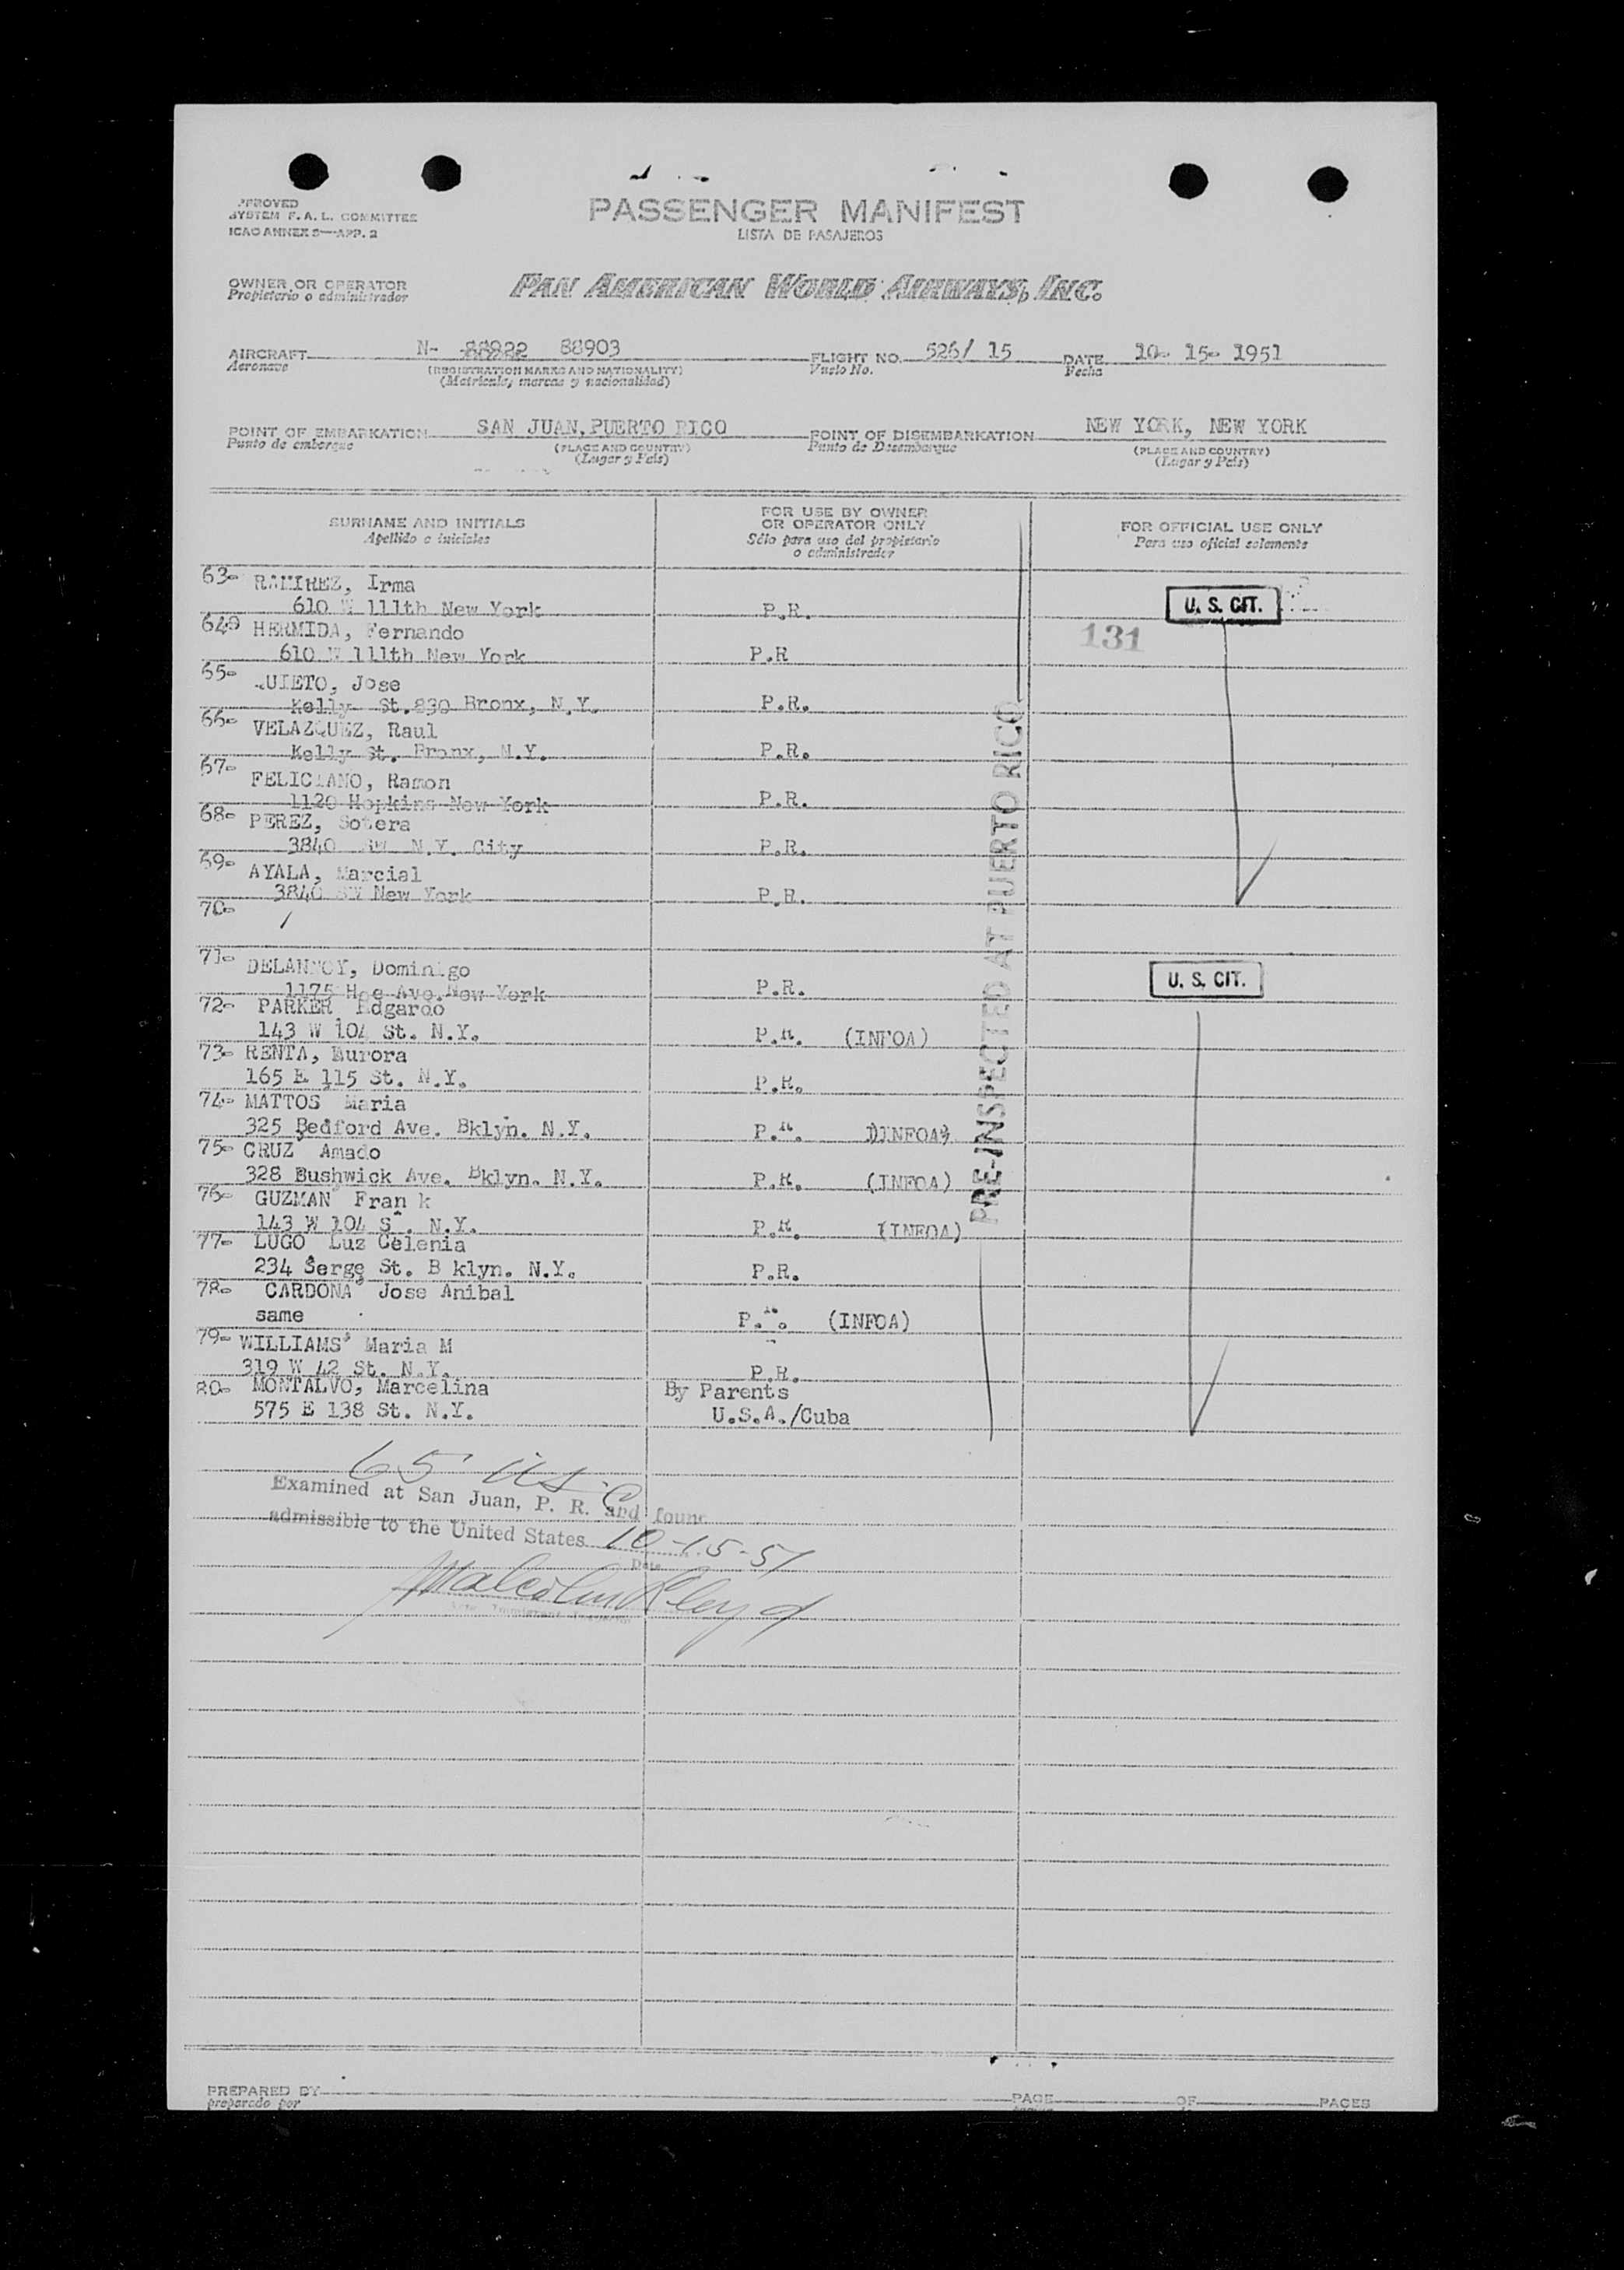 APPROVED
SYSTEM F.A.L. COMMITTEE
ICAO ANNEX 9—APP. 2
PASSENGER MANIFEST
LISTA DE PASAJEROS
OWNER OR OPERATOR
Propietario o administrador
PAN AMERICAN WORLD AIRWAYS, INC.
AIRCRAFT N- 88922 88903 FLIGHT NO. 526/ 15 DATE 10- 15- 1951
Aeronave (REGISTRATION MARKS AND NATIONALITY) Vuelo No. Fecha
(Matricula, marcas y nacionalidad)
POINT OF EMBARKATION SAN JUAN, PUERTO RICO POINT OF DISEMBARKATION NEW YORK, NEW YORK
Punto de embarque (PLACE AND COUNTRY) Punto de Desembarque (PLACE AND COUNTRY)
(Lugar y País) (Lugar y País)
SURNAME AND INITIALS FOR USE BY OWNER OR OPERATOR ONLY FOR OFFICIAL USE ONLY
Apellido e iniciales Sólo para uso del propietario o administrador Para uso oficial solamente
63- RAMIREZ, Irma
610 W 111th New York P.R. U. S. CIT.
64- HERMIDA, Fernando 131
610 W 111th New York P.R
65- QUIETO, Jose
Kelly St. 830 Bronx, N.Y. P.R.
66- VELAZQUEZ, Raul
Kelly St. Bronx, N.Y. P.R.
67- FELICIANO, Ramon
1120 Hopkins New York P.R.
68- PEREZ, Sotera
3840 N.Y. City P.R.
69- AYALA, Marcial
3840 New York P.R.
70-
71- DELANNOY, Dominigo U. S. CIT.
1175 Hoe Ave. New York P.R.
72- PARKER Edgardo
143 W 104 St. N.Y. P.R. (INFOA)
73- RENTA, Aurora
165 E 115 St. N.Y. P.R.
74- MATTOS Maria
325 Bedford Ave. Bklyn. N.Y. P.R. (INFOA)
75- CRUZ Amado
328 Bushwick Ave. Bklyn. N.Y. P.R. (INFOA)
76- GUZMAN Fran k
143 W 104 St. N.Y. P.R. (INFOA)
77- LUGO Luz Celenia
234 Serge St. B klyn. N.Y. P.R.
78- CARDONA Jose Anibal
same P.R. (INFOA)
79- WILLIAMS Maria M
319 W 42 St. N.Y. P.R.
80- MONTALVO, Marcelina By Parents
575 E 138 St. N.Y. U.S.A./Cuba
PRE-INSPECTED AT PUERTO RICO
65 us C
Examined at San Juan, P. R. and found
admissible to the United States 10-15-51
Date
PREPARED BY PAGE OF PAGES
preparado por